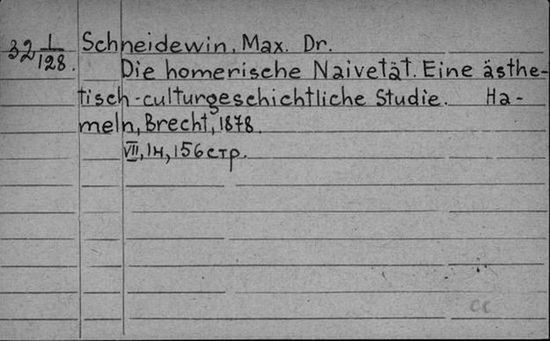 32 1/128. Schneidewin, Max. Dr.
Die homerische Naivetät. Eine ästhe-
tisch-culturgeschichtliche Studie. Ha-
meln, Brecht, 1878.
VII, 1н, 156 стр.
cc